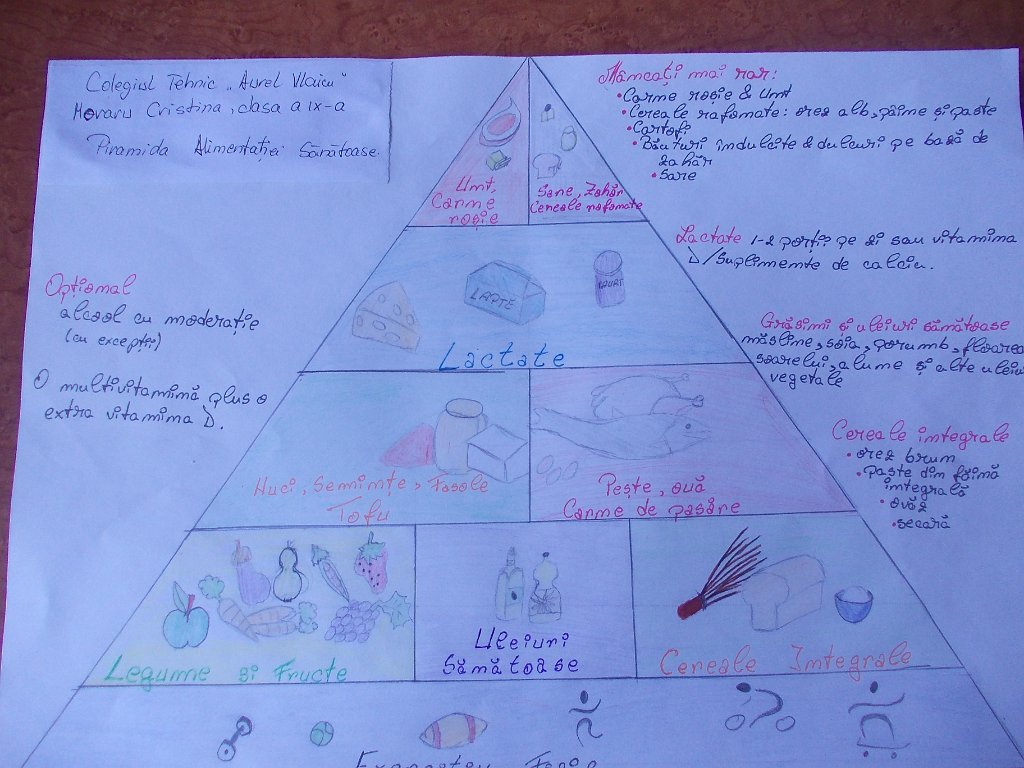 Colegiul Tehnic „Aurel Vlaicu"
Hovaru Cristina, clasa a IX-a
Piramida Alimentației Sănătoase.
Mâncați mai rar:
• Carne roșie & Unt
• Cereale rafinate: orez alb, pâine și paste
• Cartofi
• Băuturi îndulcite & dulciuri pe bază de
zahăr
• Sare
Unt,
Carne
roșie
Sare, Zahăr
Cereale rafinate
Lactate 1-2 porții pe zi sau vitamina
D/Suplimente de calciu.
Opțional
alcool cu moderație
(cu excepții)
O multivitamină plus o
extra vitamina D.
LAPTE
IAURT
Lactate
Grăsimi și uleiuri sănătoase
măsline, soia, porumb, floarea
soarelui, alune și alte uleiu
vegetale
Nuci, Seminte, Fasole
Tofu
Pește, ouă
Carne de pasăre
Cereale integrale
• orez brun
• Paste din făină
integrală
• ovăz
• secară
Legume si Fructe
Uleiuri
Sănătoase
Cereale Integrale